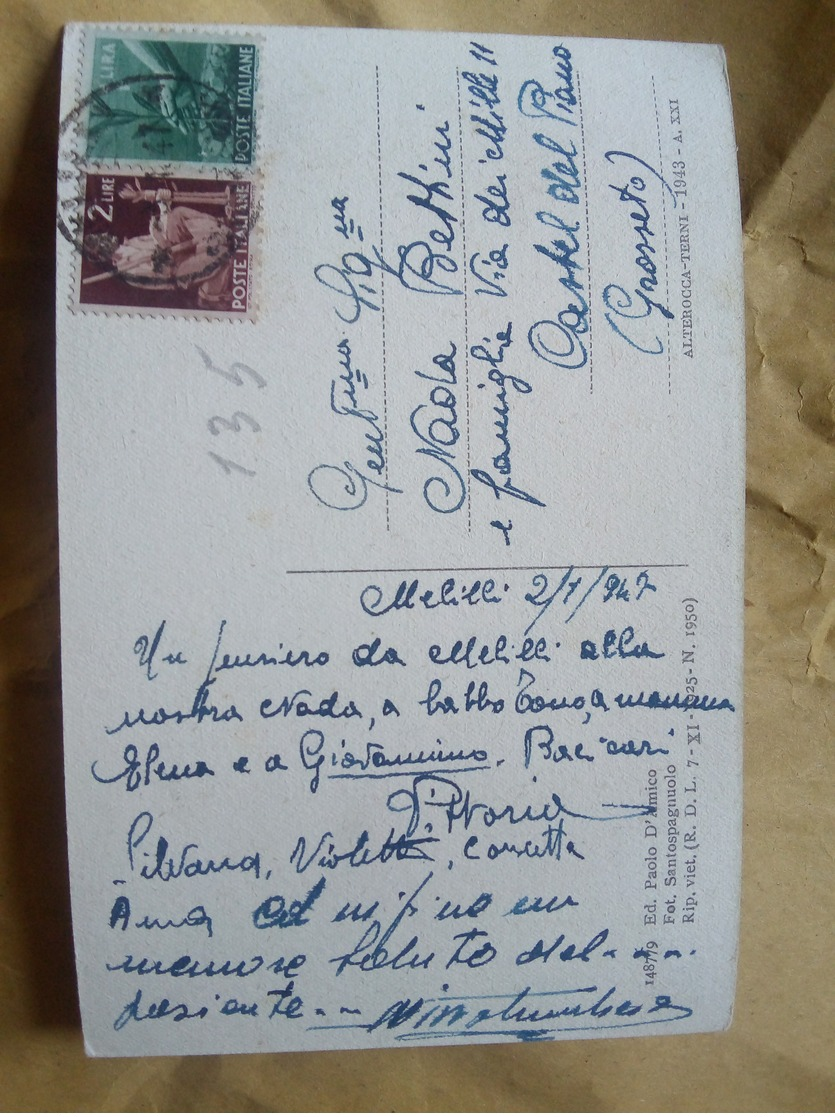 Melilli 2/1/947
Un pensiero da Melilli alla
nostra Nada, a babbo Tono, a mamma
Elena e a Giovannino. Baci cari
Vittoria
Silvana, Violetta, Concetta
Anna ed infine un
memore saluto del...
paziente...
135
LIRA
POSTE ITALIANE
2 LIRE
POSTE ITALIANE
47
Gent.ma Sig.na
Nada Bettini
e famiglia Via dei Mille 11
Castel del Piano
(Grosseto)
ALTEROCCA-TERNI - 1943 - A. XXI
148779 Ed. Paolo D'Amico
Fot. Santospagnuolo
Rip. viet. (R. D. L. 7 - XI - 1925 - N. 1950)